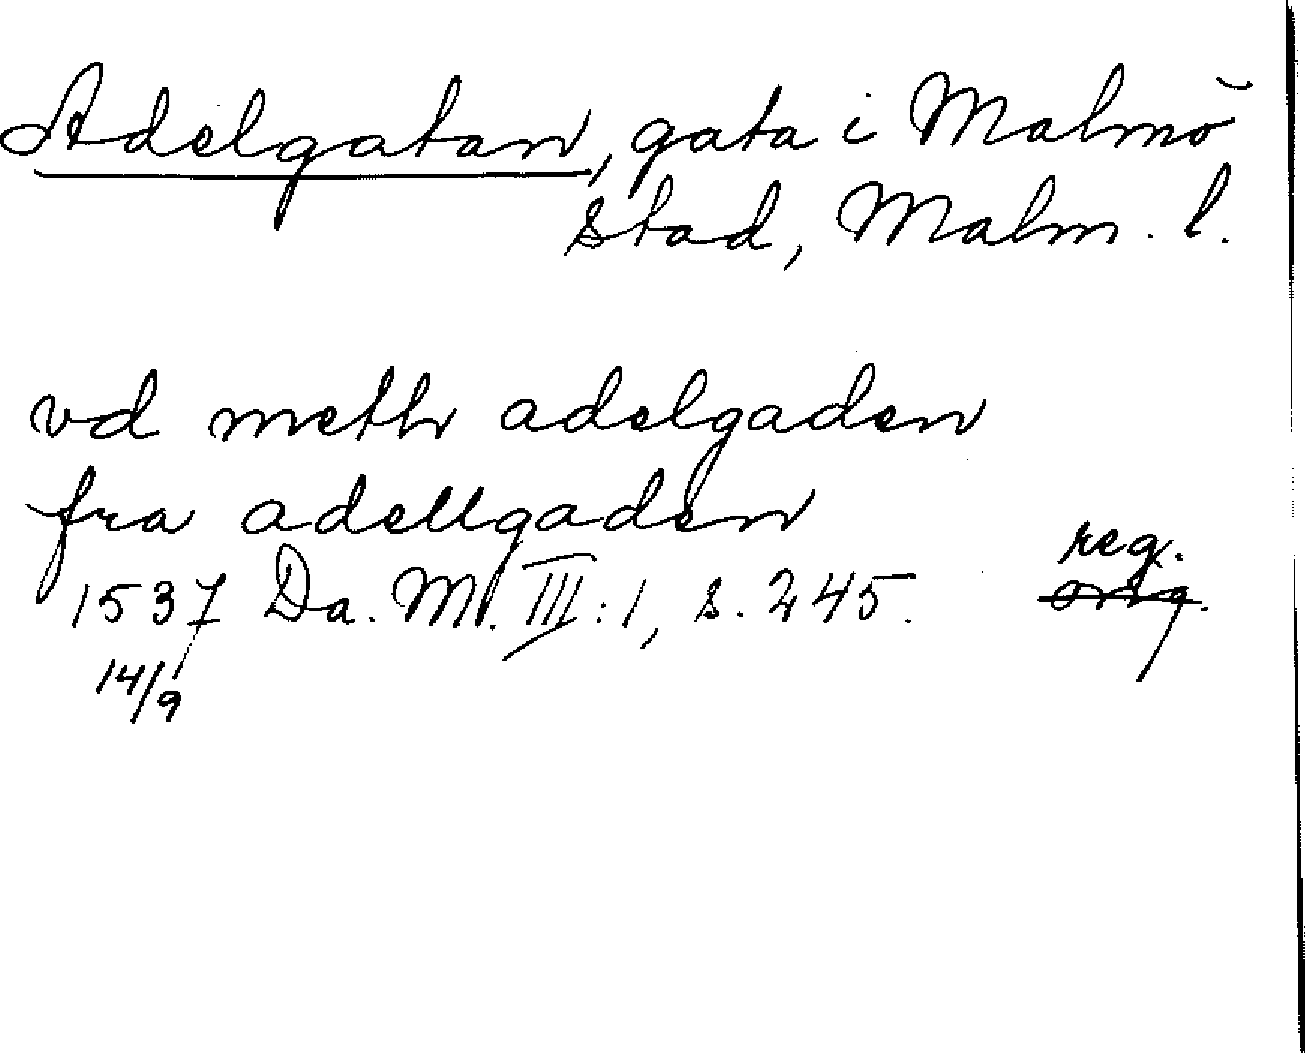 Adelgatan, gata i Malmö
stad, Malm. l.
vd meth adelgaden
fra adellgaden
reg.
1537 Da. M. III: 1, s. 245. orig.
14/9